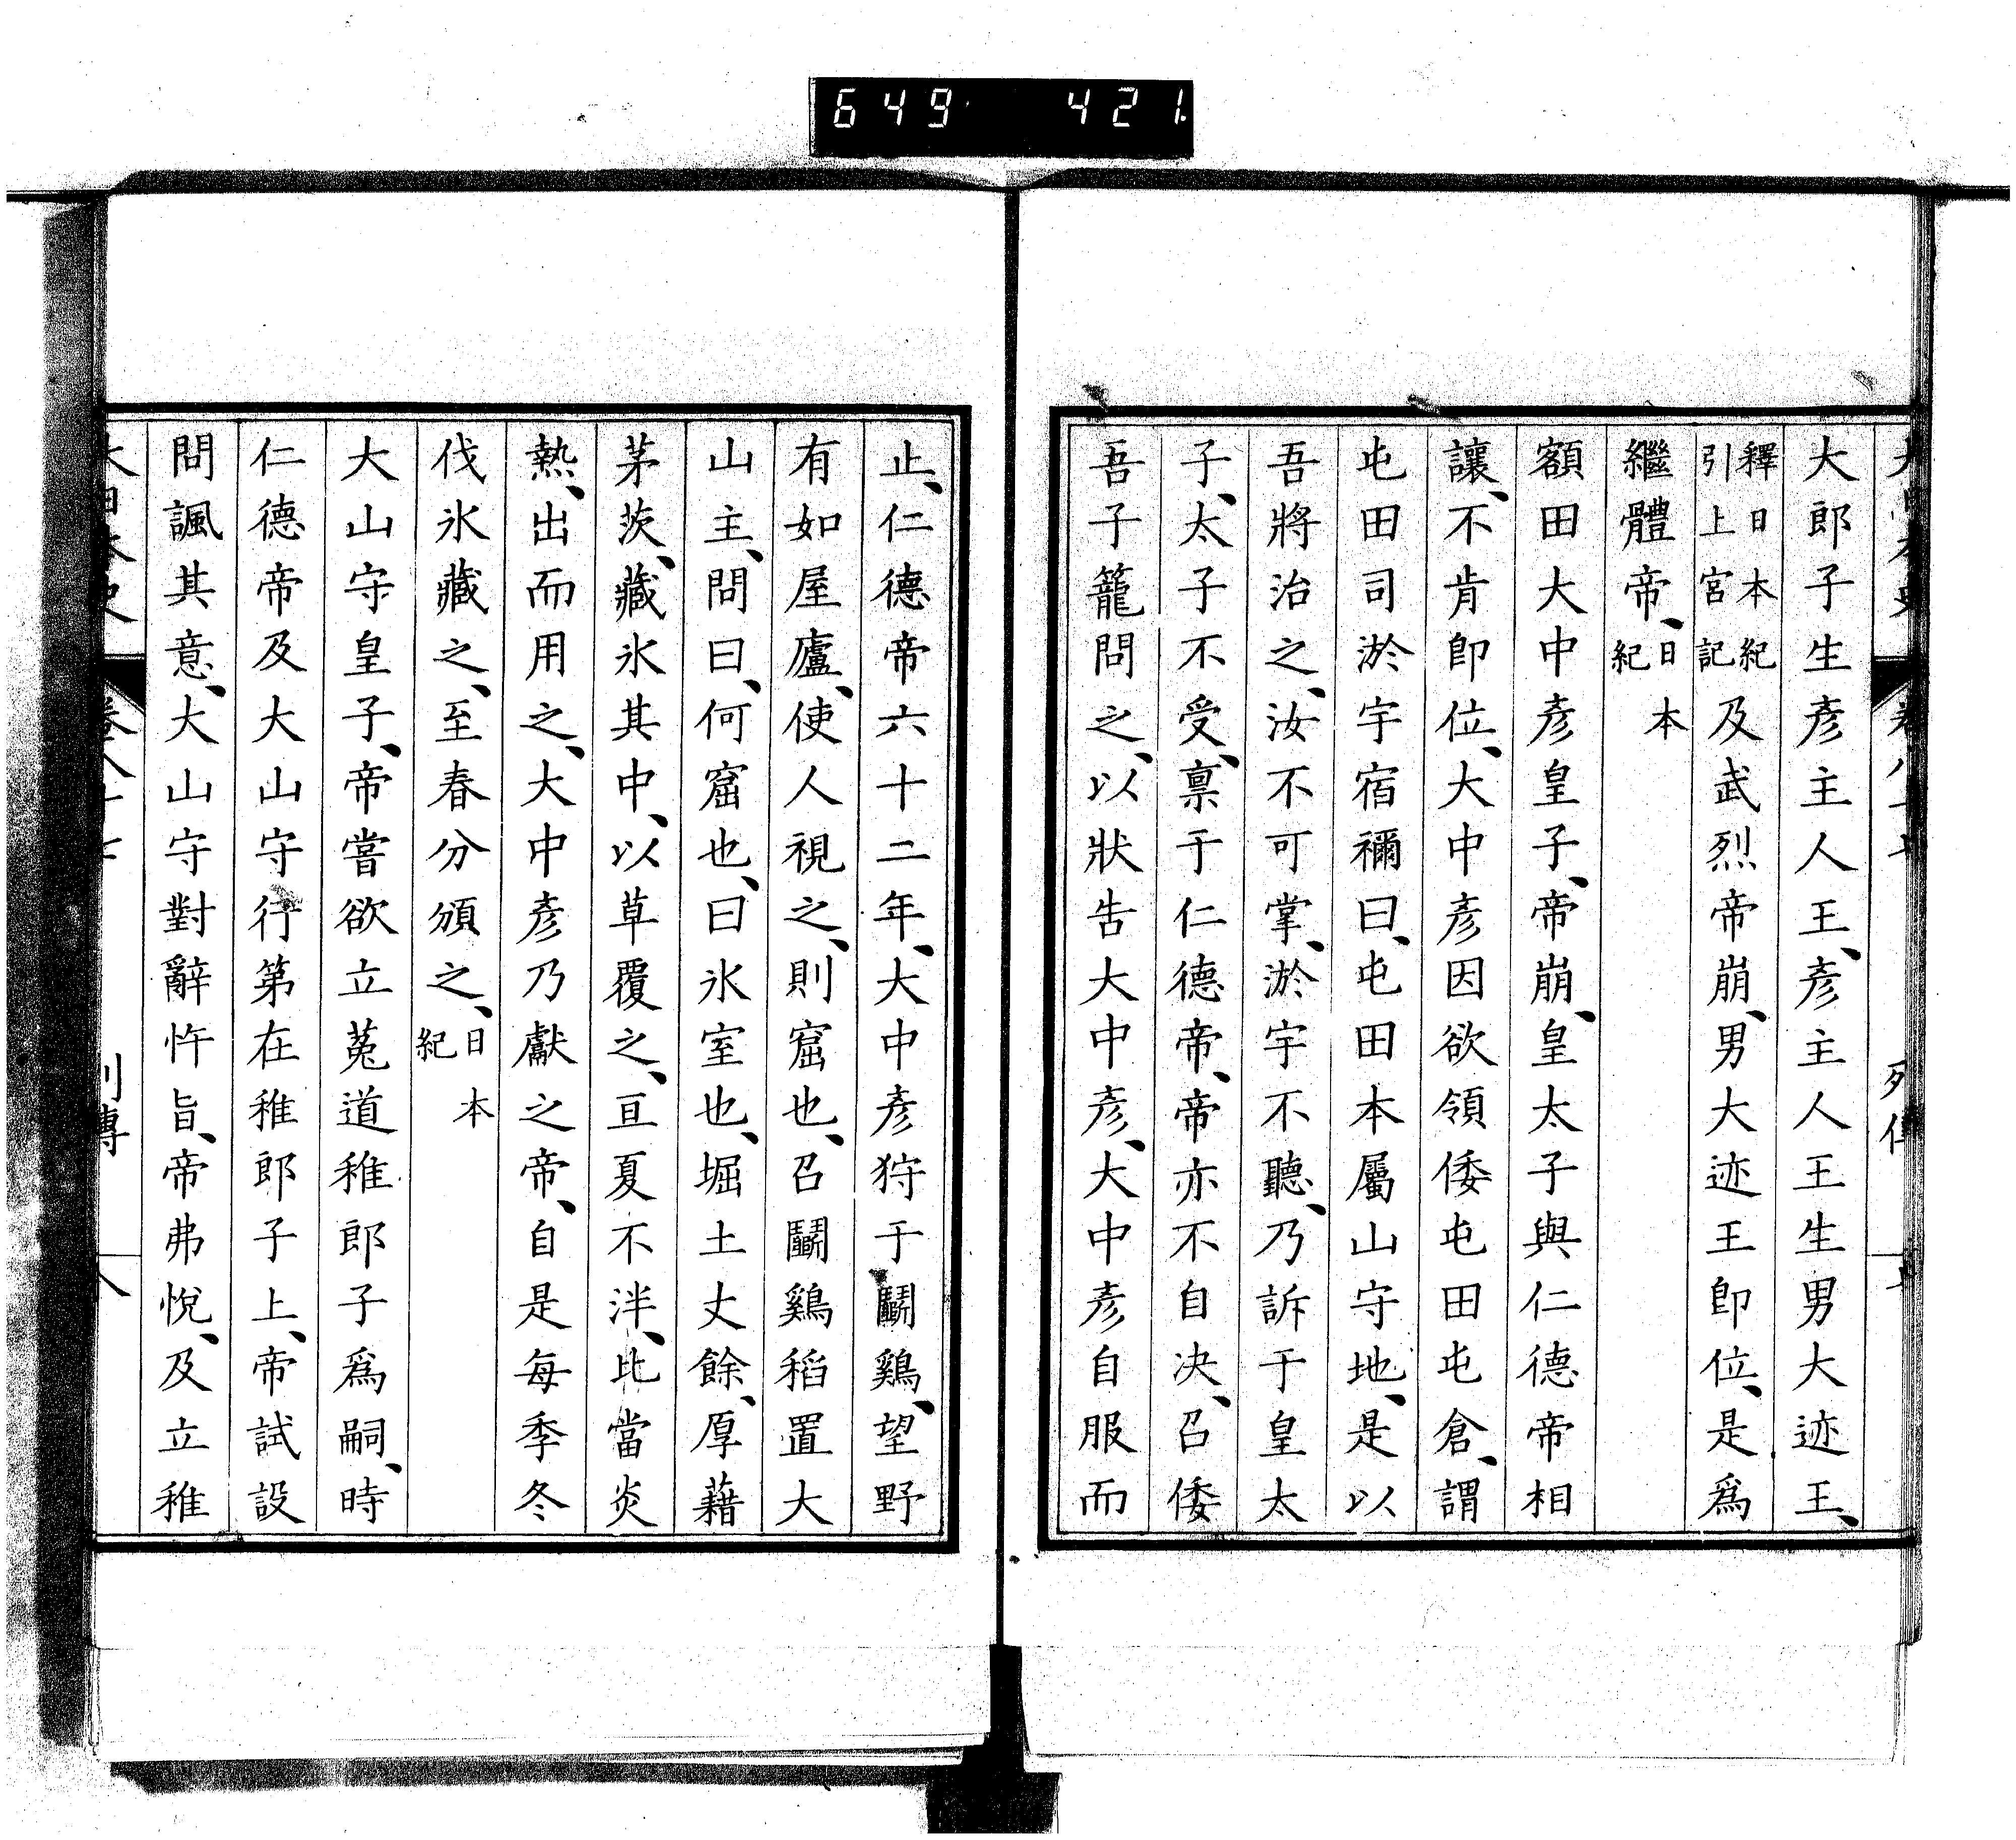 649 421
大郎子生彥主人王、彥主人王生男大迹王、
釋日本紀引上宮記及武烈帝崩、男大迹王卽位、是爲
繼體帝、日本紀
額田大中彥皇子、帝崩、皇太子與仁德帝相
讓、不肯卽位、大中彥因欲領倭屯田屯倉、謂
屯田司淤宇宿禰曰、屯田本屬山守地、是以
吾將治之、汝不可掌、淤宇不聽、乃訴于皇太
子、太子不受、稟于仁德帝、帝亦不自决、召倭
吾子籠問之、以狀告大中彥、大中彥自服而
止、仁德帝六十二年、大中彥狩于鬭鷄、望野
有如屋廬、使人視之、則窟也、召鬭鷄稻置大
山主、問曰、何窟也、曰氷室也、堀土丈餘、厚藉
茅茨、藏氷其中、以草覆之、亘夏不泮、比當炎
熱、出而用之、大中彥乃獻之帝、自是每季冬
伐氷藏之、至春分頒之、日本紀
大山守皇子、帝嘗欲立菟道稚郎子爲嗣、時
仁德帝及大山守行第在稚郎子上、帝試設
問諷其意、大山守對辭忤旨、帝弗悅、及立稚
大日本史 卷八十七 列傳 八